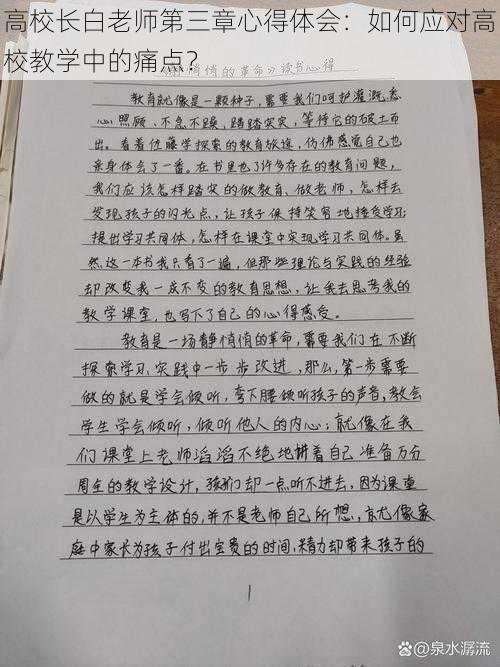 高校长白老师第三章心得体会：如何应对高
校教学中的痛点？
悄悄的革命》读书心得
教育就像是一颗种子，需要我们呵护灌溉，悉
心照顾、不急不躁，踏踏实实，等待它的破土而
出。看着佐藤学探索的教育旅途，仿佛感觉自己也
亲身体会了一番。在书里也了许多存在的教育问题，
我们应该怎样踏实的做教育、做老师，怎样去
发现孩子的闪光点，让孩子保持笑容地接受学习
提出学习共同体，怎样在课堂中实现学习共同体。虽
然这一本书我只看了一遍，但那些理论与实践的经验
却改变我一成不变的教育思想，让我去思考我的
教学课堂，也写下了自己的心得感受。
教育是一场静悄悄的革命，需要我们在不断
探索学习、实践中一步步改进，那么，第一步需要
做的就是学会倾听，弯下腰倾听孩子的声音，教会
学生学会倾听，倾听他人的内心；就像在我
们课堂上老师滔滔不绝地讲着自己准备万分
周全的教学设计，孩子们却一点听不进去，因为课堂
是以学生为主体的，并不是老师自己所想，就像家
庭中家长为孩子付出宝贵的时间、精力却带来孩子的
1
@泉水潺流